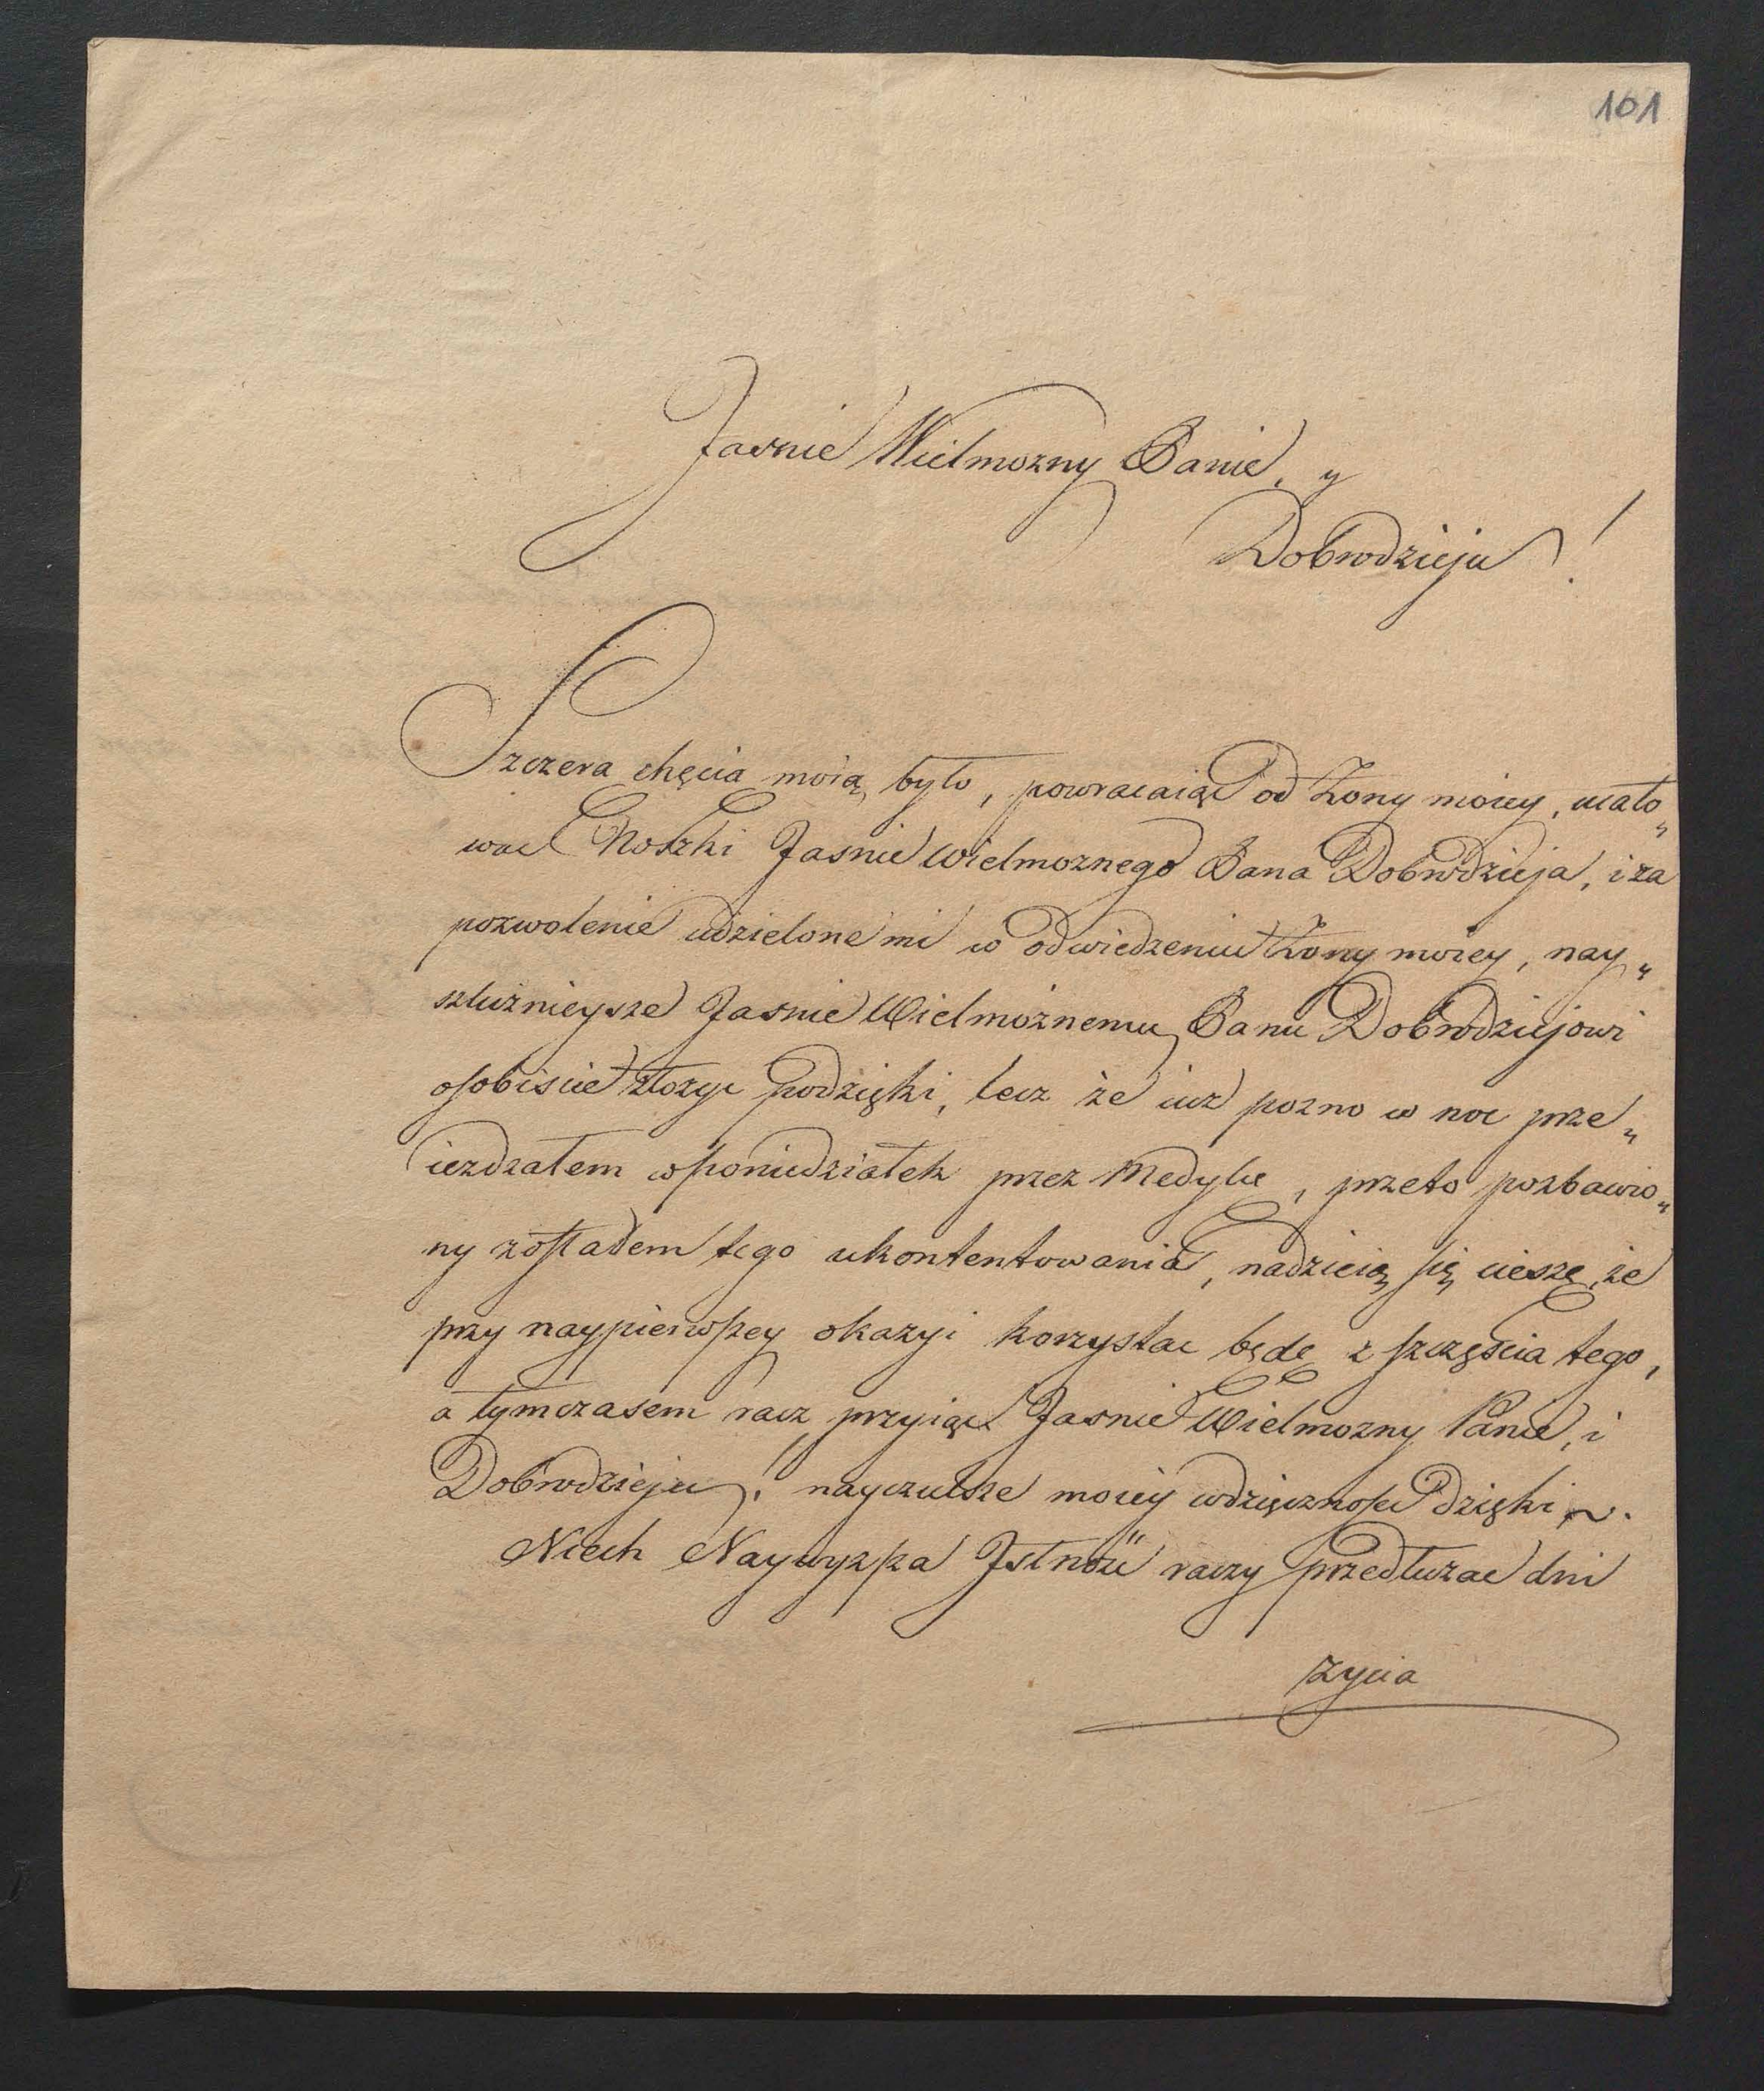 101
Jasnie Wielmozny Panie, y
Dobrodzieju!
Szczera chęcia moią było, powracaiąc od Zony moiey, ucało„
wac Nozki Jasnie Wielmoznego Pana Dobrodzieja, i za
pozwolenie udzielone mi w odwiedzeniu Zony moiey, nay„
słuznieysze Jasnie Wielmoznemu Panu Dobrodziejowi
osobiscie złozyc podzięki, lecz że iuz pozno w noc prze„
iezdzałem w poniedziałek przez Medykę, przeto pozbawio„
ny zostałem tego ukontentowania, nadzieią się ciesze, że
przy naypierwszey okazyi korzystac będę z szczęscia tego,
a tymczasem racz przyiąc Jasnie Wielmozny Panie, i
Dobrodzieju! nayczulsze moiey wdzięcznosci dzięki.
Niech Naywyzsza Istnosc raczy przedłuzac dni
zycia